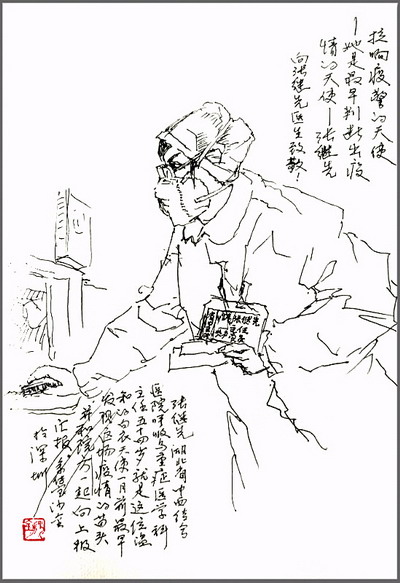 拉响疫警的天使
—她是最早判断出疫
情的天使—张继先
向张继先医生致敬！
张继先
主任
张继先湖北省中西结合
医院呼吸与重症医学科
主任五十四岁就是这位温
和的白衣天使一月前最早
发现这场疫情的苗头
并和院方一起向上级
汇报
于深圳